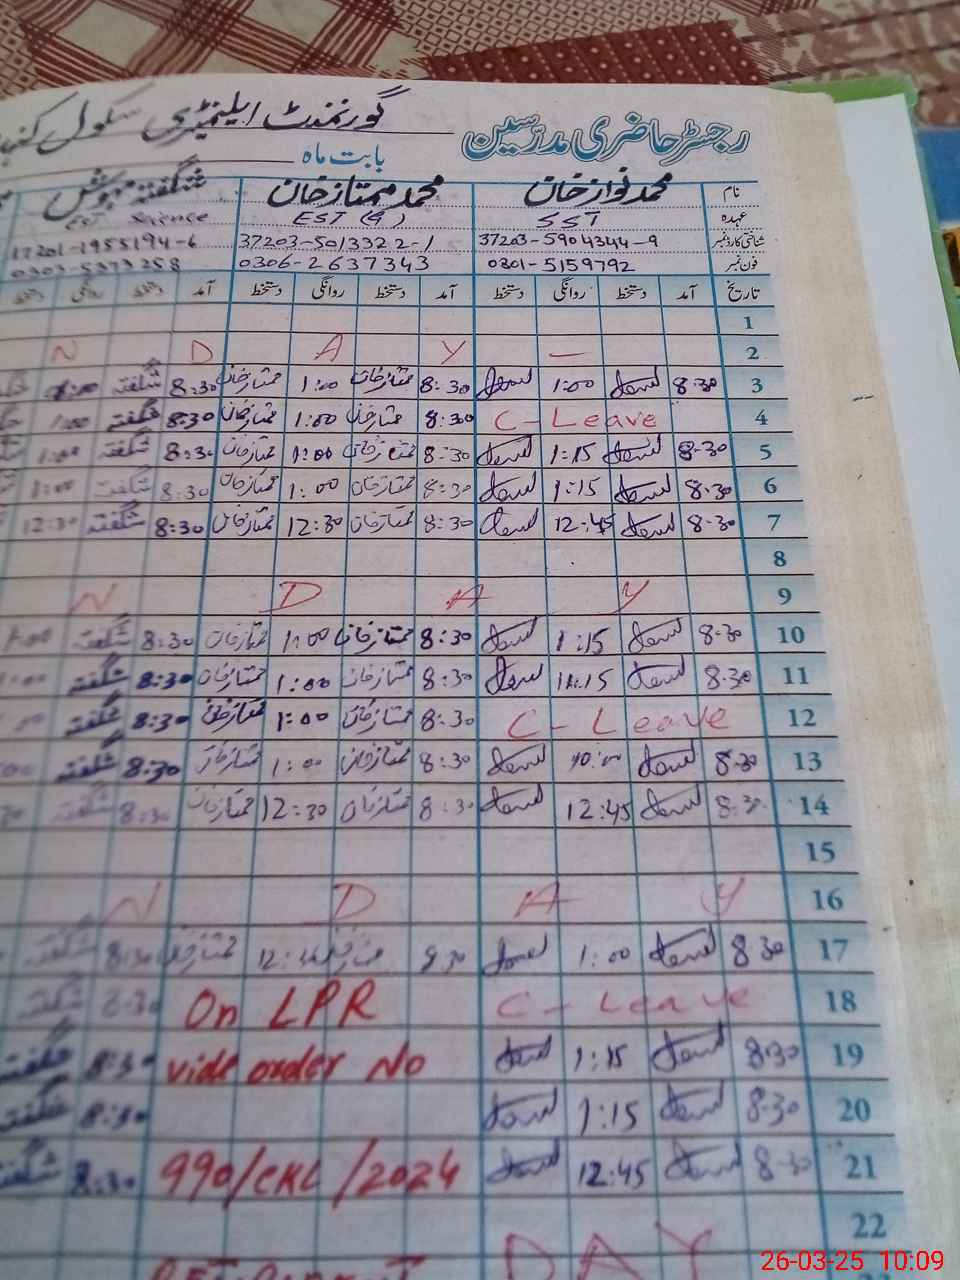 گورنمنٹ ایلیمنٹری سکول
رجسٹر حاضری مدرسین
بابت ماہ
نام محمد نواز خان محمد ممتاز خان شگفتہ مہوش
عہدہ SST EST (G) EST Science
شناختی کارڈ نمبر 37203-5904344-9 37203-5013322-1 37201-1955194-6
فون نمبر 0301-5159792 0306-2637343 0303-5373258
تاریخ آمد دستخط روانگی دستخط آمد دستخط روانگی دستخط آمد دستخط روانگی دستخط
1
2 N D A Y -
3 8:30 1:00 8:30 ممتاز خان 1:00 ممتاز خان 8:30 شگفتہ 1:00
4 C-Leave 8:30 ممتاز خان 1:00 ممتاز خان 8:30 شگفتہ 1:00
5 8:30 1:15 8:30 ممتاز خان 1:00 ممتاز خان 8:30 شگفتہ 1:00
6 8:30 1:15 8:30 ممتاز خان 1:00 ممتاز خان 8:30 شگفتہ 1:00
7 8:30 12:45 8:30 ممتاز خان 12:30 ممتاز خان 8:30 شگفتہ 12:30
8
9 N D A Y
10 8:30 1:15 8:30 ممتاز خان 1:00 ممتاز خان 8:30 شگفتہ
11 8:30 8:30 ممتاز خان 1:00 ممتاز خان 8:30 شگفتہ
12 C-Leave 8:30 ممتاز خان 1:00 ممتاز خان 8:30 شگفتہ
13 8:30 8:30 ممتاز خان 1:00 ممتاز خان 8:30 شگفتہ
14 8:30 12:45 8:30 ممتاز خان 12:30 ممتاز خان 8:30 شگفتہ
15
16 N D A Y
17 8:30 1:00 8:30 ممتاز خان ممتاز خان 8:30 شگفتہ
18 C-Leave On LPR 8:30 شگفتہ
19 8:30 1:15 vide order No 8:30 شگفتہ
20 8:30 1:15 8:30 شگفتہ
21 8:30 12:45 990/CKL/2024 8:30 شگفتہ
22
DAY
26-03-25 10:09